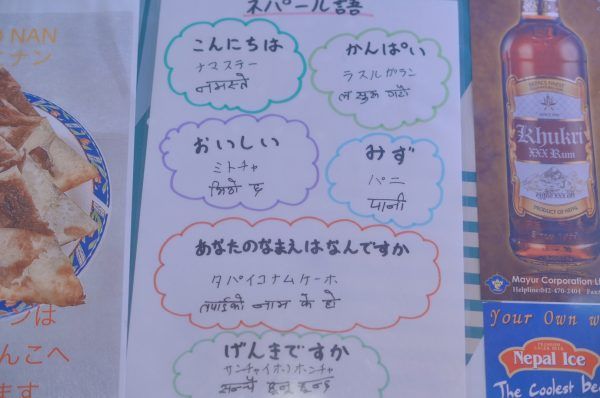 ネパール語
こんにちは
ナマステー
नमस्ते
かんぱい
おいしい
ミトチャ
मिठो छ
みず
パニ
पानी
あなたのなまえはなんですか
タパイコナムケーホ
तपाईको नाम के हो
げんきですか
NAN
ナン
んこへ
ます
Khukri
XXX Rum
PRODUCT OF NEPAL
Mayur Corporation
Helpline:042-470-2404
Your Own
Nepal Ice
The Coolest